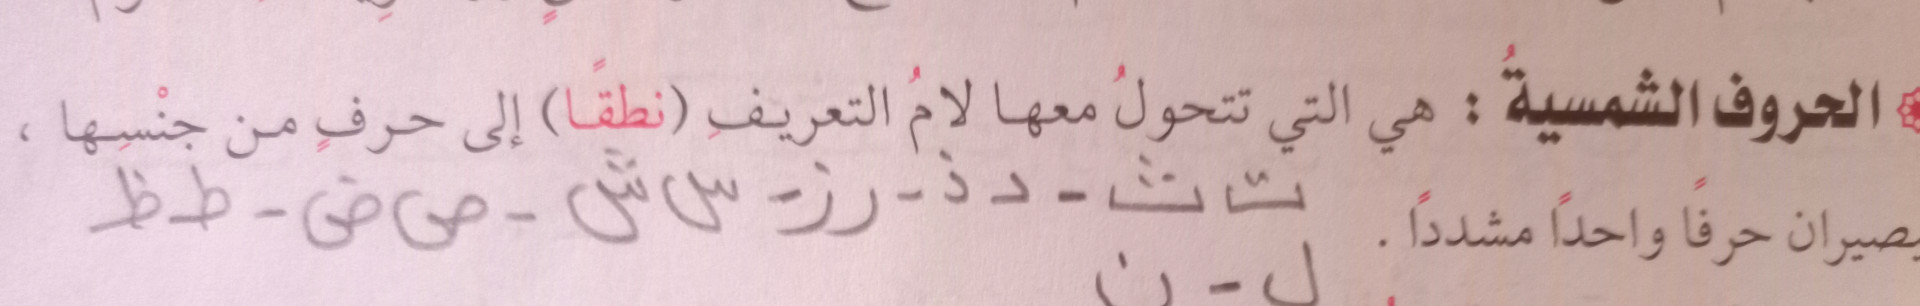 الحروف الشمسيةُ : هي التي تتحولُ معها لامُ التعريفِ (نطقًا) إلى حرفٍ من جنْسِها ،
يصيران حرفًا واحدًا مشددًا .
ت ث - د ذ - ر ز - س ش - ص ض - ط ظ
ل - ن